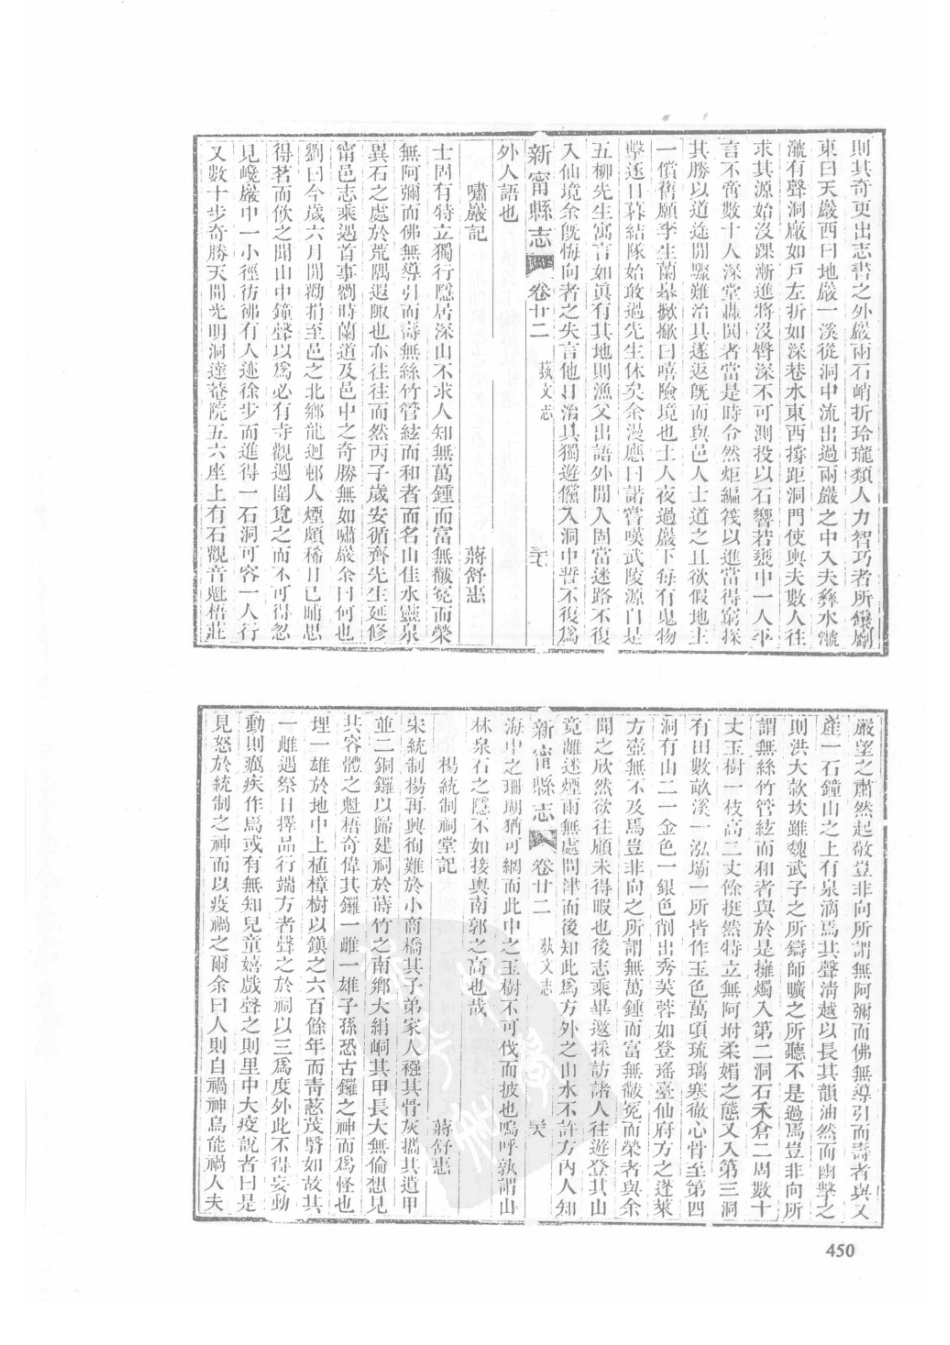 則其奇更出志書之外巖兩石峭折玲瓏類人力智巧者所儠劚
東曰天巖西曰地巖一溪從洞中流出過兩巖之中入夫彝水㶁
㶁有聲洞厰如戶左折如深巷水東西撐距洞門使輿夫數人往
求其源始沒踝漸進將沒臀深不可測投以石響若甕中一人平
言不啻數十人深堂轟聞者當是時令然炬編筏以進當得窮採
其勝以道迩閒驟難治具遂返旣而與邑人士道之且欲假地主
一償舊願李生蘭暴揿揿曰嘻險境也土人夜過巖下每有鬼物
擊逐日暮結隊始敢過先生休矣余漫應曰諾嘗嘆武陵源自是
五柳先生寓言如眞有其地則漁父出語外聞入固當迷路不復
入仙境余旣悔向者之失言他日治具獨遊儻入洞中誓不復爲
新甯縣志 卷廿二 藝文志
外人語也
嘯巖記 蔣舒惠
士固有特立獨行隱居深山不求人知無萬鍾而富無黻冕而榮
無阿彌而佛無導引而壽無絲竹管絃而和者而名山佳水靈泉
異石之處於荒隅遐陬也亦往往而然丙子歲安循齊先生延修
甯邑志乘遇首事劉時蘭道及邑中之奇勝無如嘯巖余曰何也
劉曰今歲六月間勸捐至邑之北鄉龍迥邨人煙頗稀日已晡思
得茗而飲之聞山中鐘聲以爲必有寺觀週圍覓之而不可得忽
見巉巖中一小徑彷彿有人迹徐步而進得一石洞可容一人行
又數十步奇勝天開光明洞達菴院五六座上有石觀音魁梧莊
嚴望之肅然起敬豈非向所謂無阿彌而佛無導引而壽者與又
產一石鐘山之上有泉滴焉其聲淸越以長其韻油然而幽擊之
則洪大款坎雖魏武子之所鑄師曠之所聽不是過焉豈非向所
謂無絲竹管絃而和者與於是擁燭入第二洞石禾倉二周數十
丈玉樹一枝高二丈餘挺然特立無阿坿柔媚之態又入第三洞
有田數畝溪一泓壩一所皆作玉色萬頃琉璃寒徹心骨至第四
洞有山二一金色一銀色削出秀芙蓉如登瑤臺仙府方之蓬萊
方壺無不及焉豈非向之所謂無萬鍾而富無黻冕而榮者與余
聞之欣然欲往顧未得暇也後志乘畢邀採訪諸人往遊登其山
竟離迷煙雨無處問津而後知此爲方外之山水不許方內人知
新甯縣志 卷廿二 藝文志
海中之珊瑚猶可網而此中之玉樹不可伐而披也嗚呼孰謂山
林泉石之隱不如接輿南郭之高也哉
楊統制祠堂記 蔣舒惠
宋統制楊再興徇難於小商橋其子弟家人襁其骨灰攜其遺甲
並二銅鑼以歸建祠於蒔竹之南鄉大絹峒其甲長大無倫想見
其容體之魁梧奇偉其鑼一雌一雄子孫恐古鑼之神而爲怪也
埋一雄於地中上植樟樹以鎭之六百餘年而靑葱茂翳如故其
一雌遇祭日擇品行端方者聲之於祠以三爲度外此不得妄動
動則癘疾作焉或有無知兒童嬉戲聲之則里中大疫說者曰是
見怒於統制之神而以疫禍之爾余曰人則自禍神烏能禍人夫
450